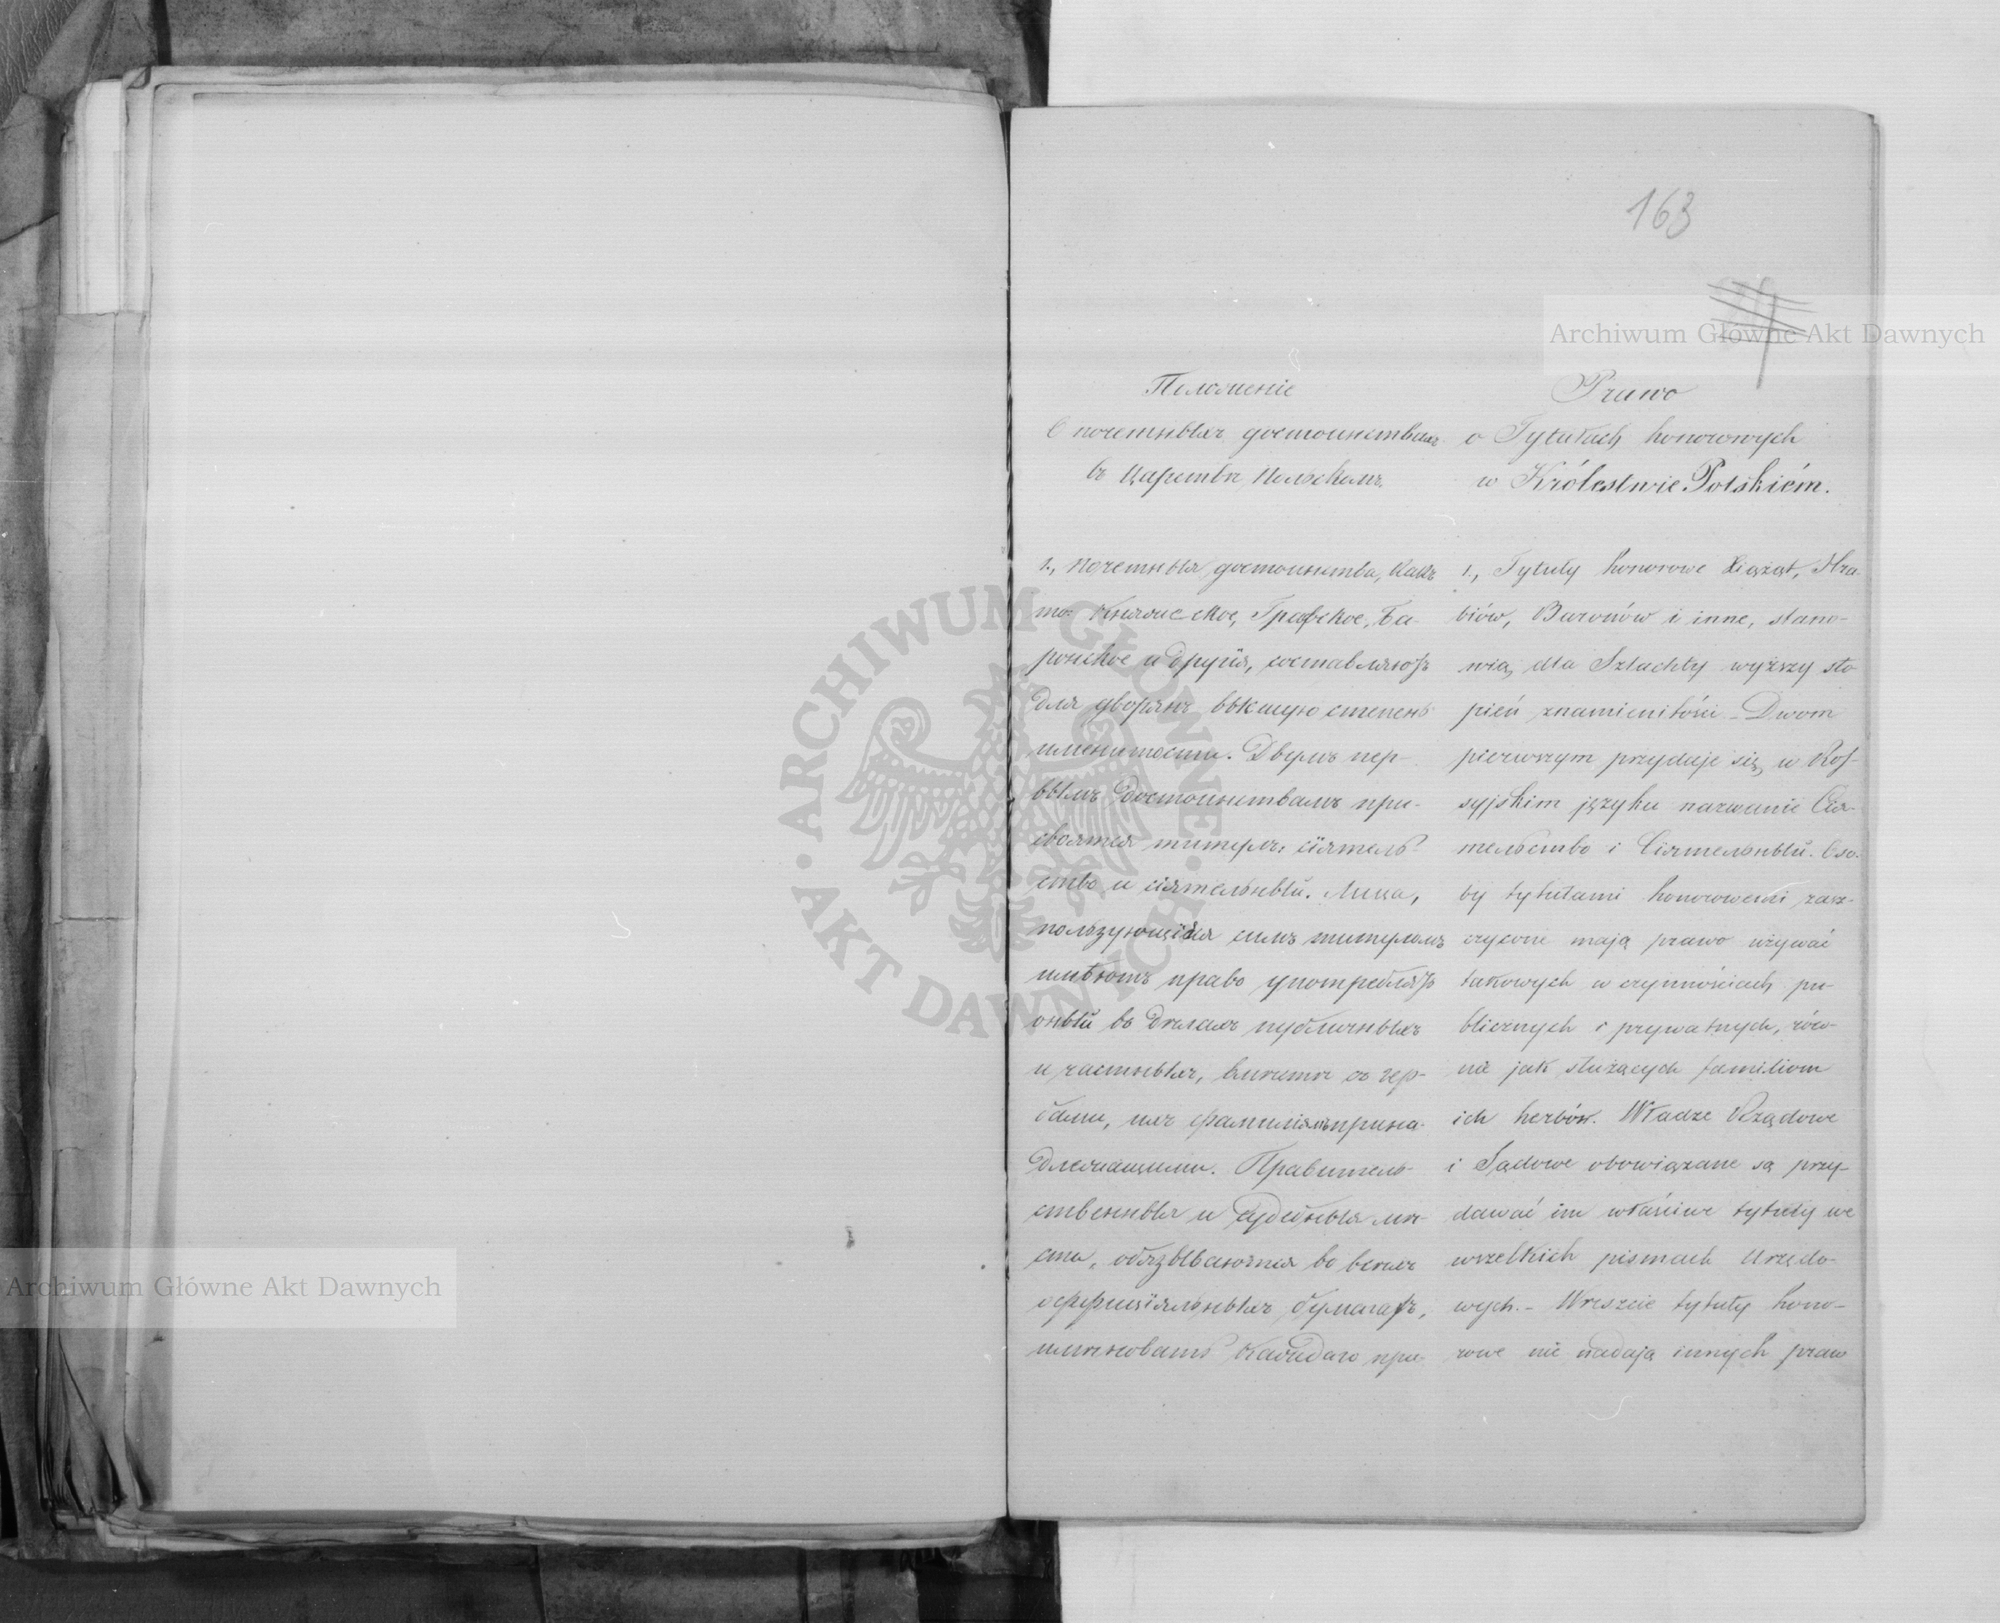 163
Положеніе
О почетныхъ достоинствахъ
въ Царствѣ Польскомъ.
1., Почетныя достоинства, какъ
то: Княжеское, Графское, Ба-
ронское и другія, составляютъ
для дворянъ высшую степень
именитости. Двумъ пер-
вымъ достоинствамъ при-
своятся титулъ, сіятель-
ство и сіятельный. Лица,
пользующіяся симъ титуломъ
имѣютъ право употреблять
оный въ дѣлахъ публичныхъ
и частныхъ, вмѣстѣ съ гер-
бами, ихъ фамиліямъ прина-
длежащими. Правитель-
ственныя и судебныя мѣ-
ста, обязываются во всѣхъ
оффиціяльныхъ бумагахъ,
именовать каждаго при-
Prawo
o Tytułach honorowych
w Królestwie Polskiém.
1., Tytuły honorowe Xiążąt, Hra-
biów, Baronów i inne, stano-
wią dla Szlachty wyższy sto-
pień znamienitości – Dwom
pierwszym przydaje się w Ros-
syjskim języku nazwanie Сія-
тельство i Сіятельный. Oso-
by tytułami honorowemi zasz-
czycone mają prawo używać
takowych w czynnościach pu-
blicznych i prywatnych, rów-
nie jak służących familiom
ich herbów. Władze Rządowe
i Sądowe obowiązane są przy-
dawać im właściwe tytuły we
wszelkich pismach Urzędo-
wych. – Wreszcie tytuły hono-
rowe nie nadają innych praw
Archiwum Główne Akt Dawnych
Archiwum Główne Akt Dawnych
ARCHIWUM GŁÓWNE · AKT DAWNYCH ·